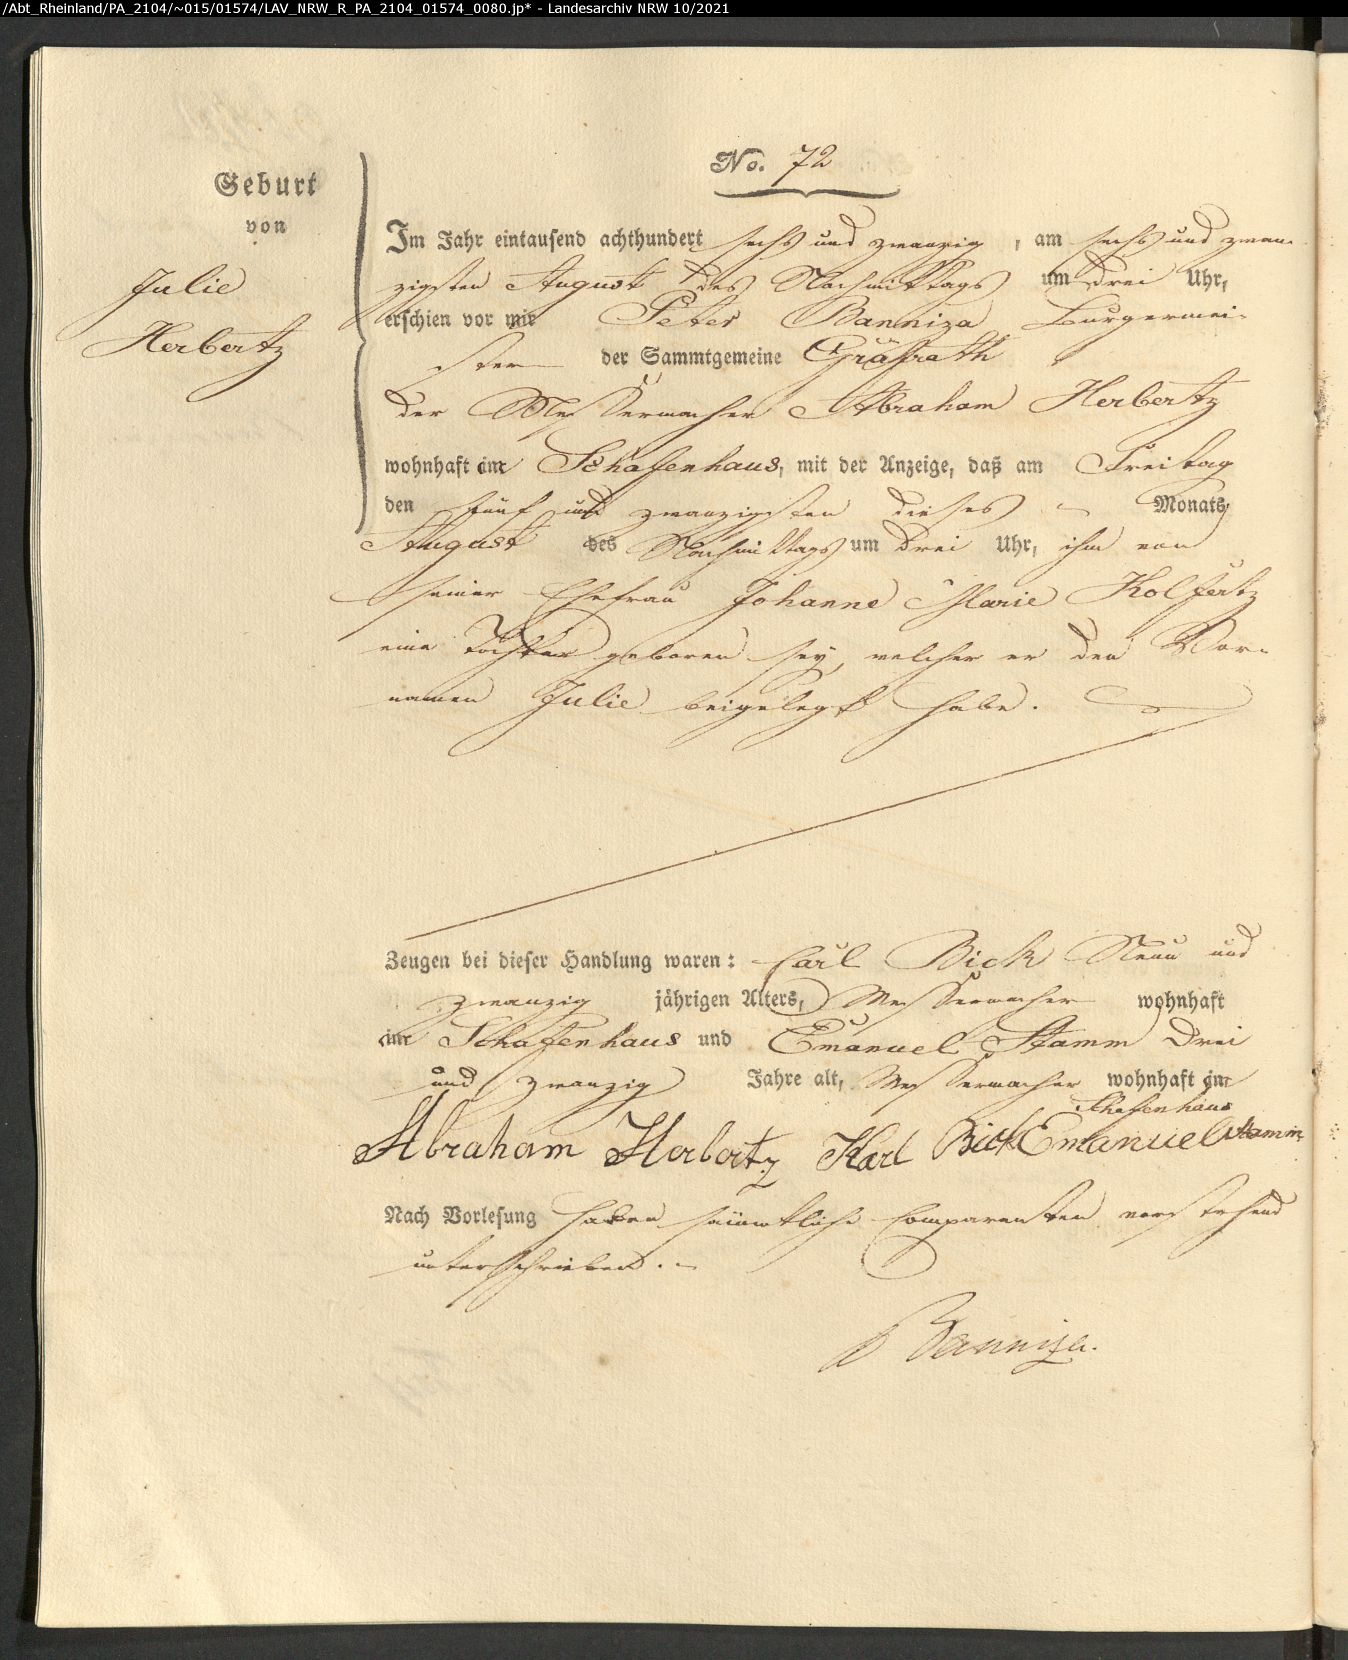 /Abt_Rheinland/PA_2104/~015/01574/LAV_NRW_R_PA_2104_01574_0080.jp* - Landesarchiv NRW 10/2021
No. 72
Geburt
von
Julie
Herbertz
Im Jahr eintausend achthundert sechs und zwanzig, am sechs und zwan-
zigsten August des Nachmittags um drei Uhr,
erschien vor mir Peter Banniza Burgermei-
ster der Sammtgemeine Gräfrath
der Messermacher Abraham Herbertz
wohnhaft im Schafenhaus, mit der Anzeige, daß am Freitag
den fünf und zwanzigsten dieses Monats
August des Nachmittags um drei Uhr, ihm von
seiner Ehefrau Johanne Marie Kolfertz
eine Tochter geboren sey, welcher er den Vor-
namen Julie beigelegt habe.
Zeugen bei dieser Handlung waren: Carl Bick Neun und
zwanzig jährigen Alters, Messermacher wohnhaft
im Schafenhaus und Emanuel Stamm drei
und zwanzig Jahre alt, Messermacher wohnhaft im
Schafenhaus
Abraham Herbertz Karl Bick Emanuel Stamm
Nach Vorlesung haben sämmtliche Comparenten vorstehend
unterschrieben.
Banniza.